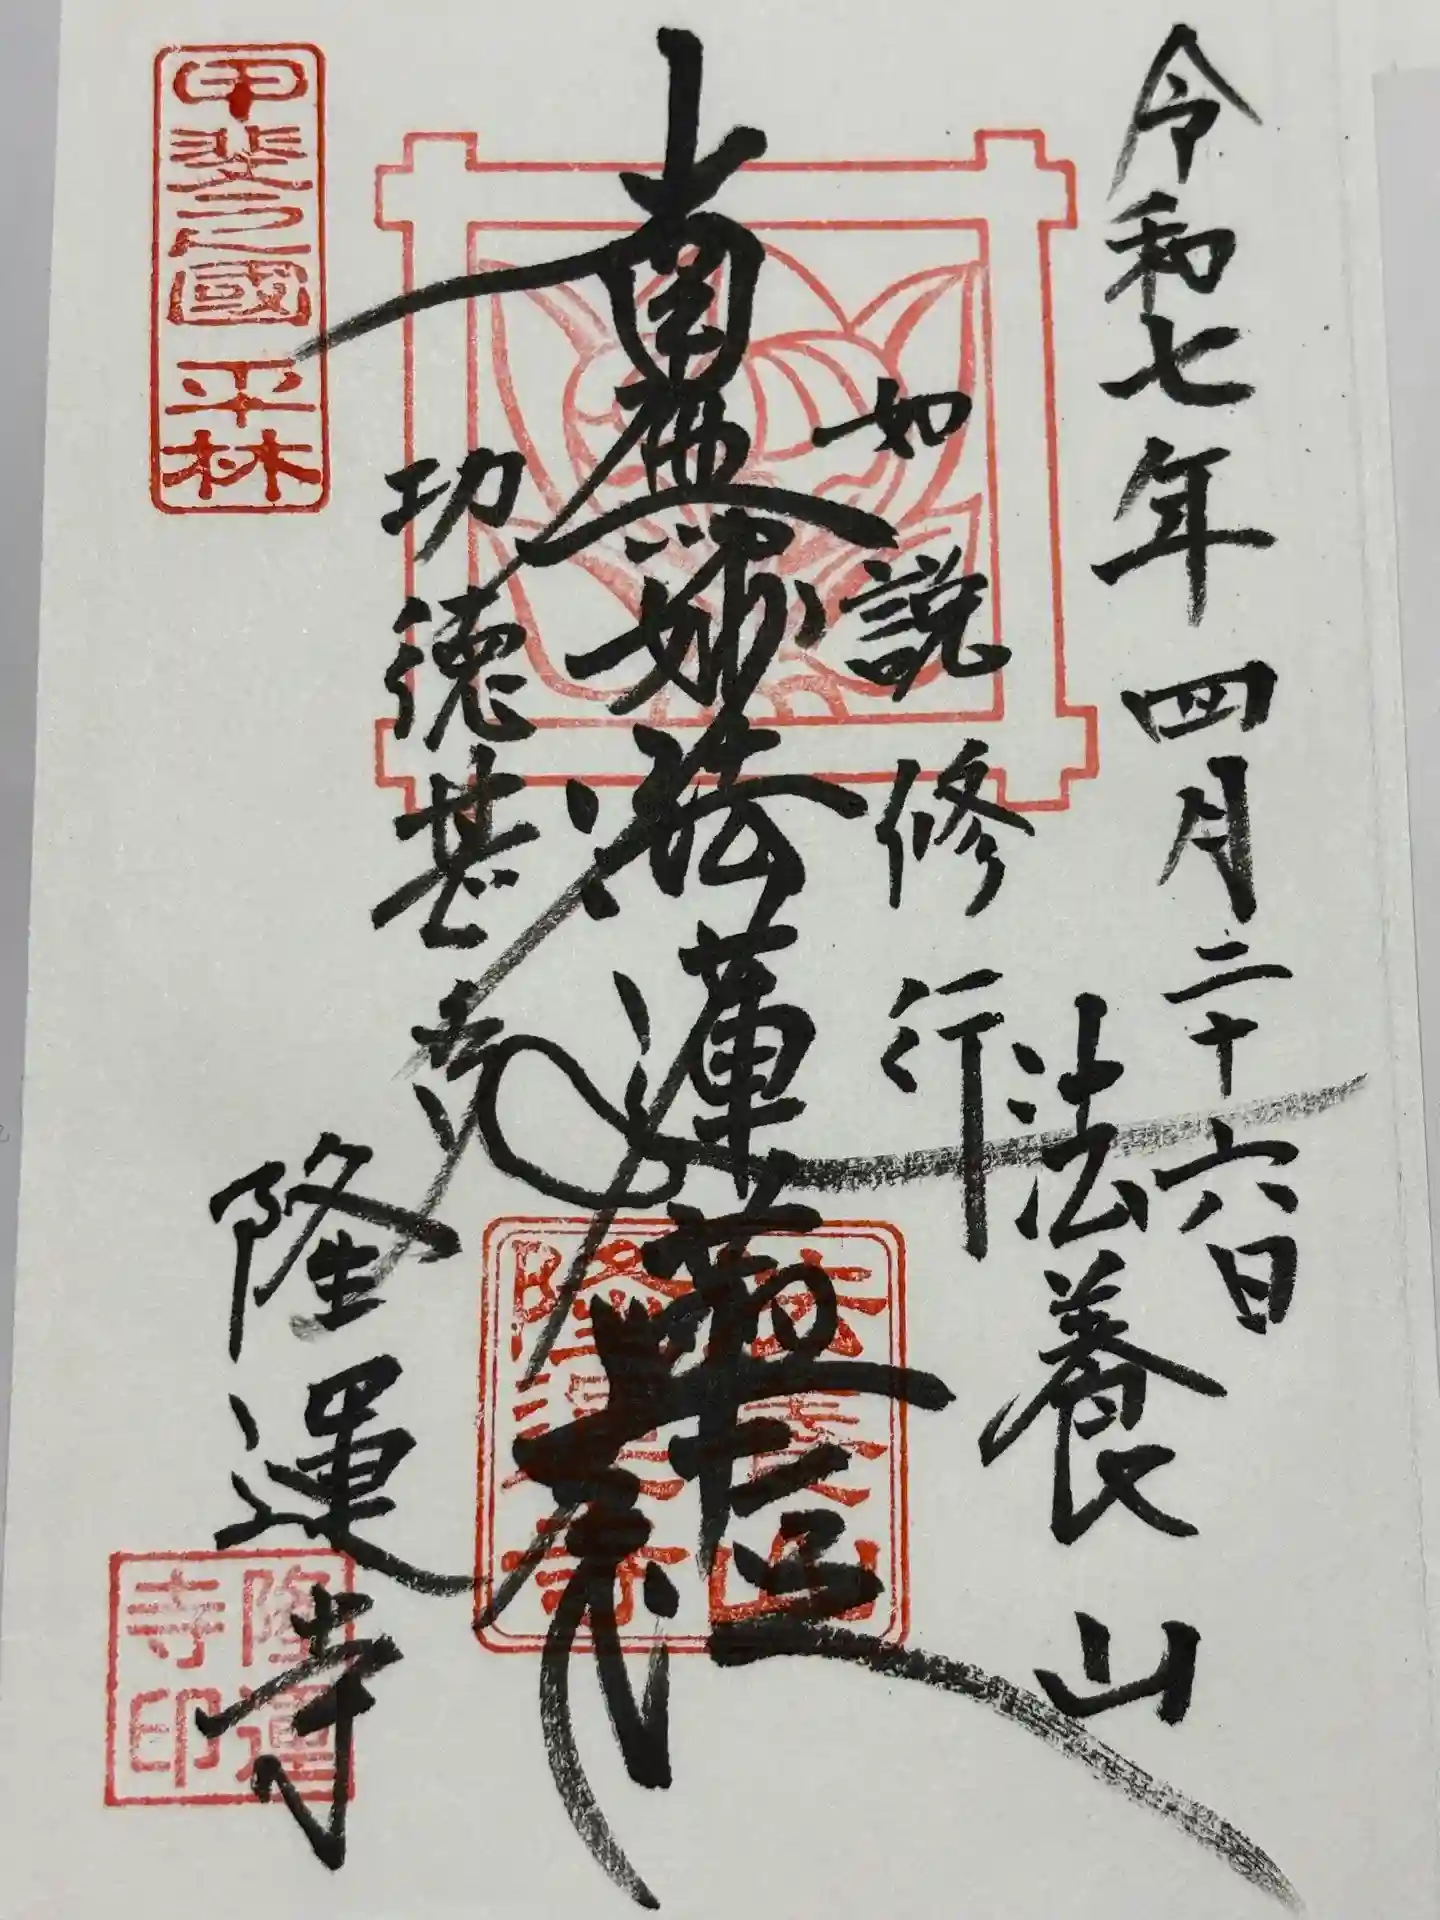 令和七年四月二十六日
法養山
如説修行
南無妙法蓮華經
功徳甚多
隆運寺
甲斐之國 平林
法養山
隆運寺
隆運
寺印